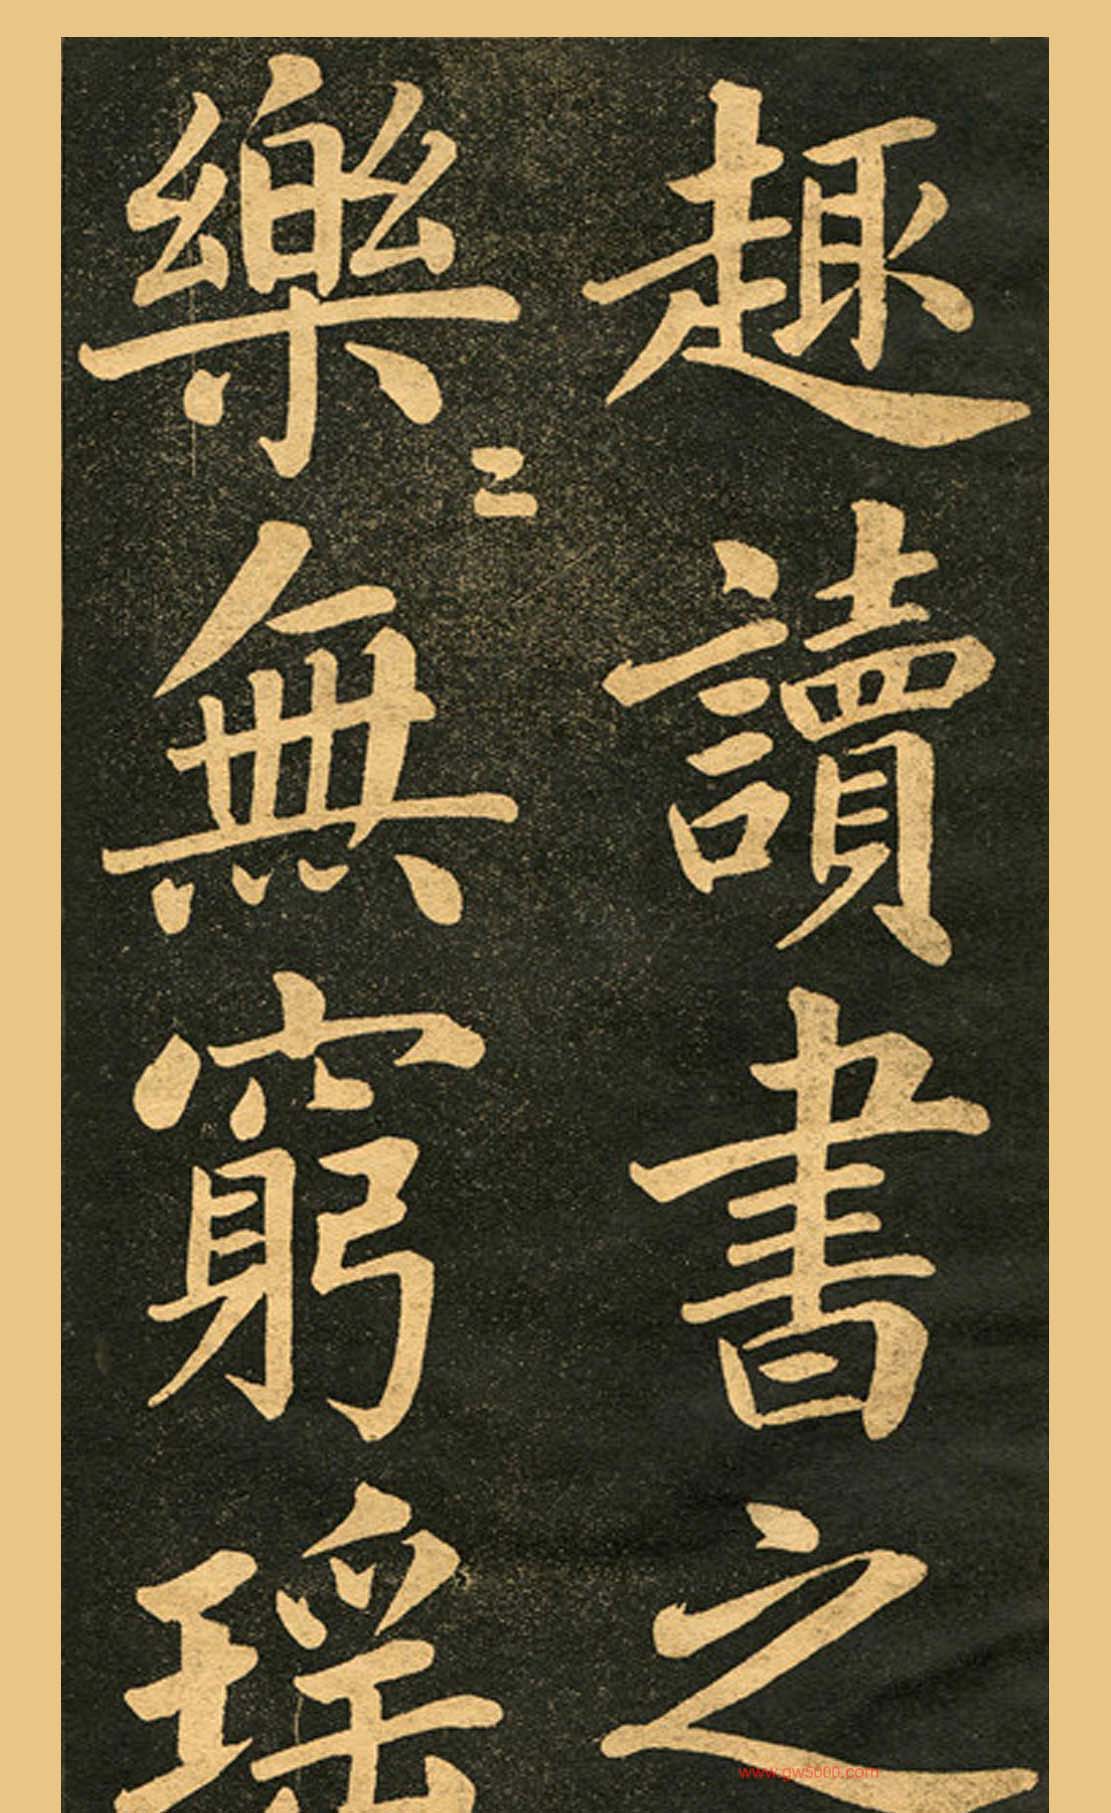 趣讀書之
樂〻無窮瑶
www.gw5000.com